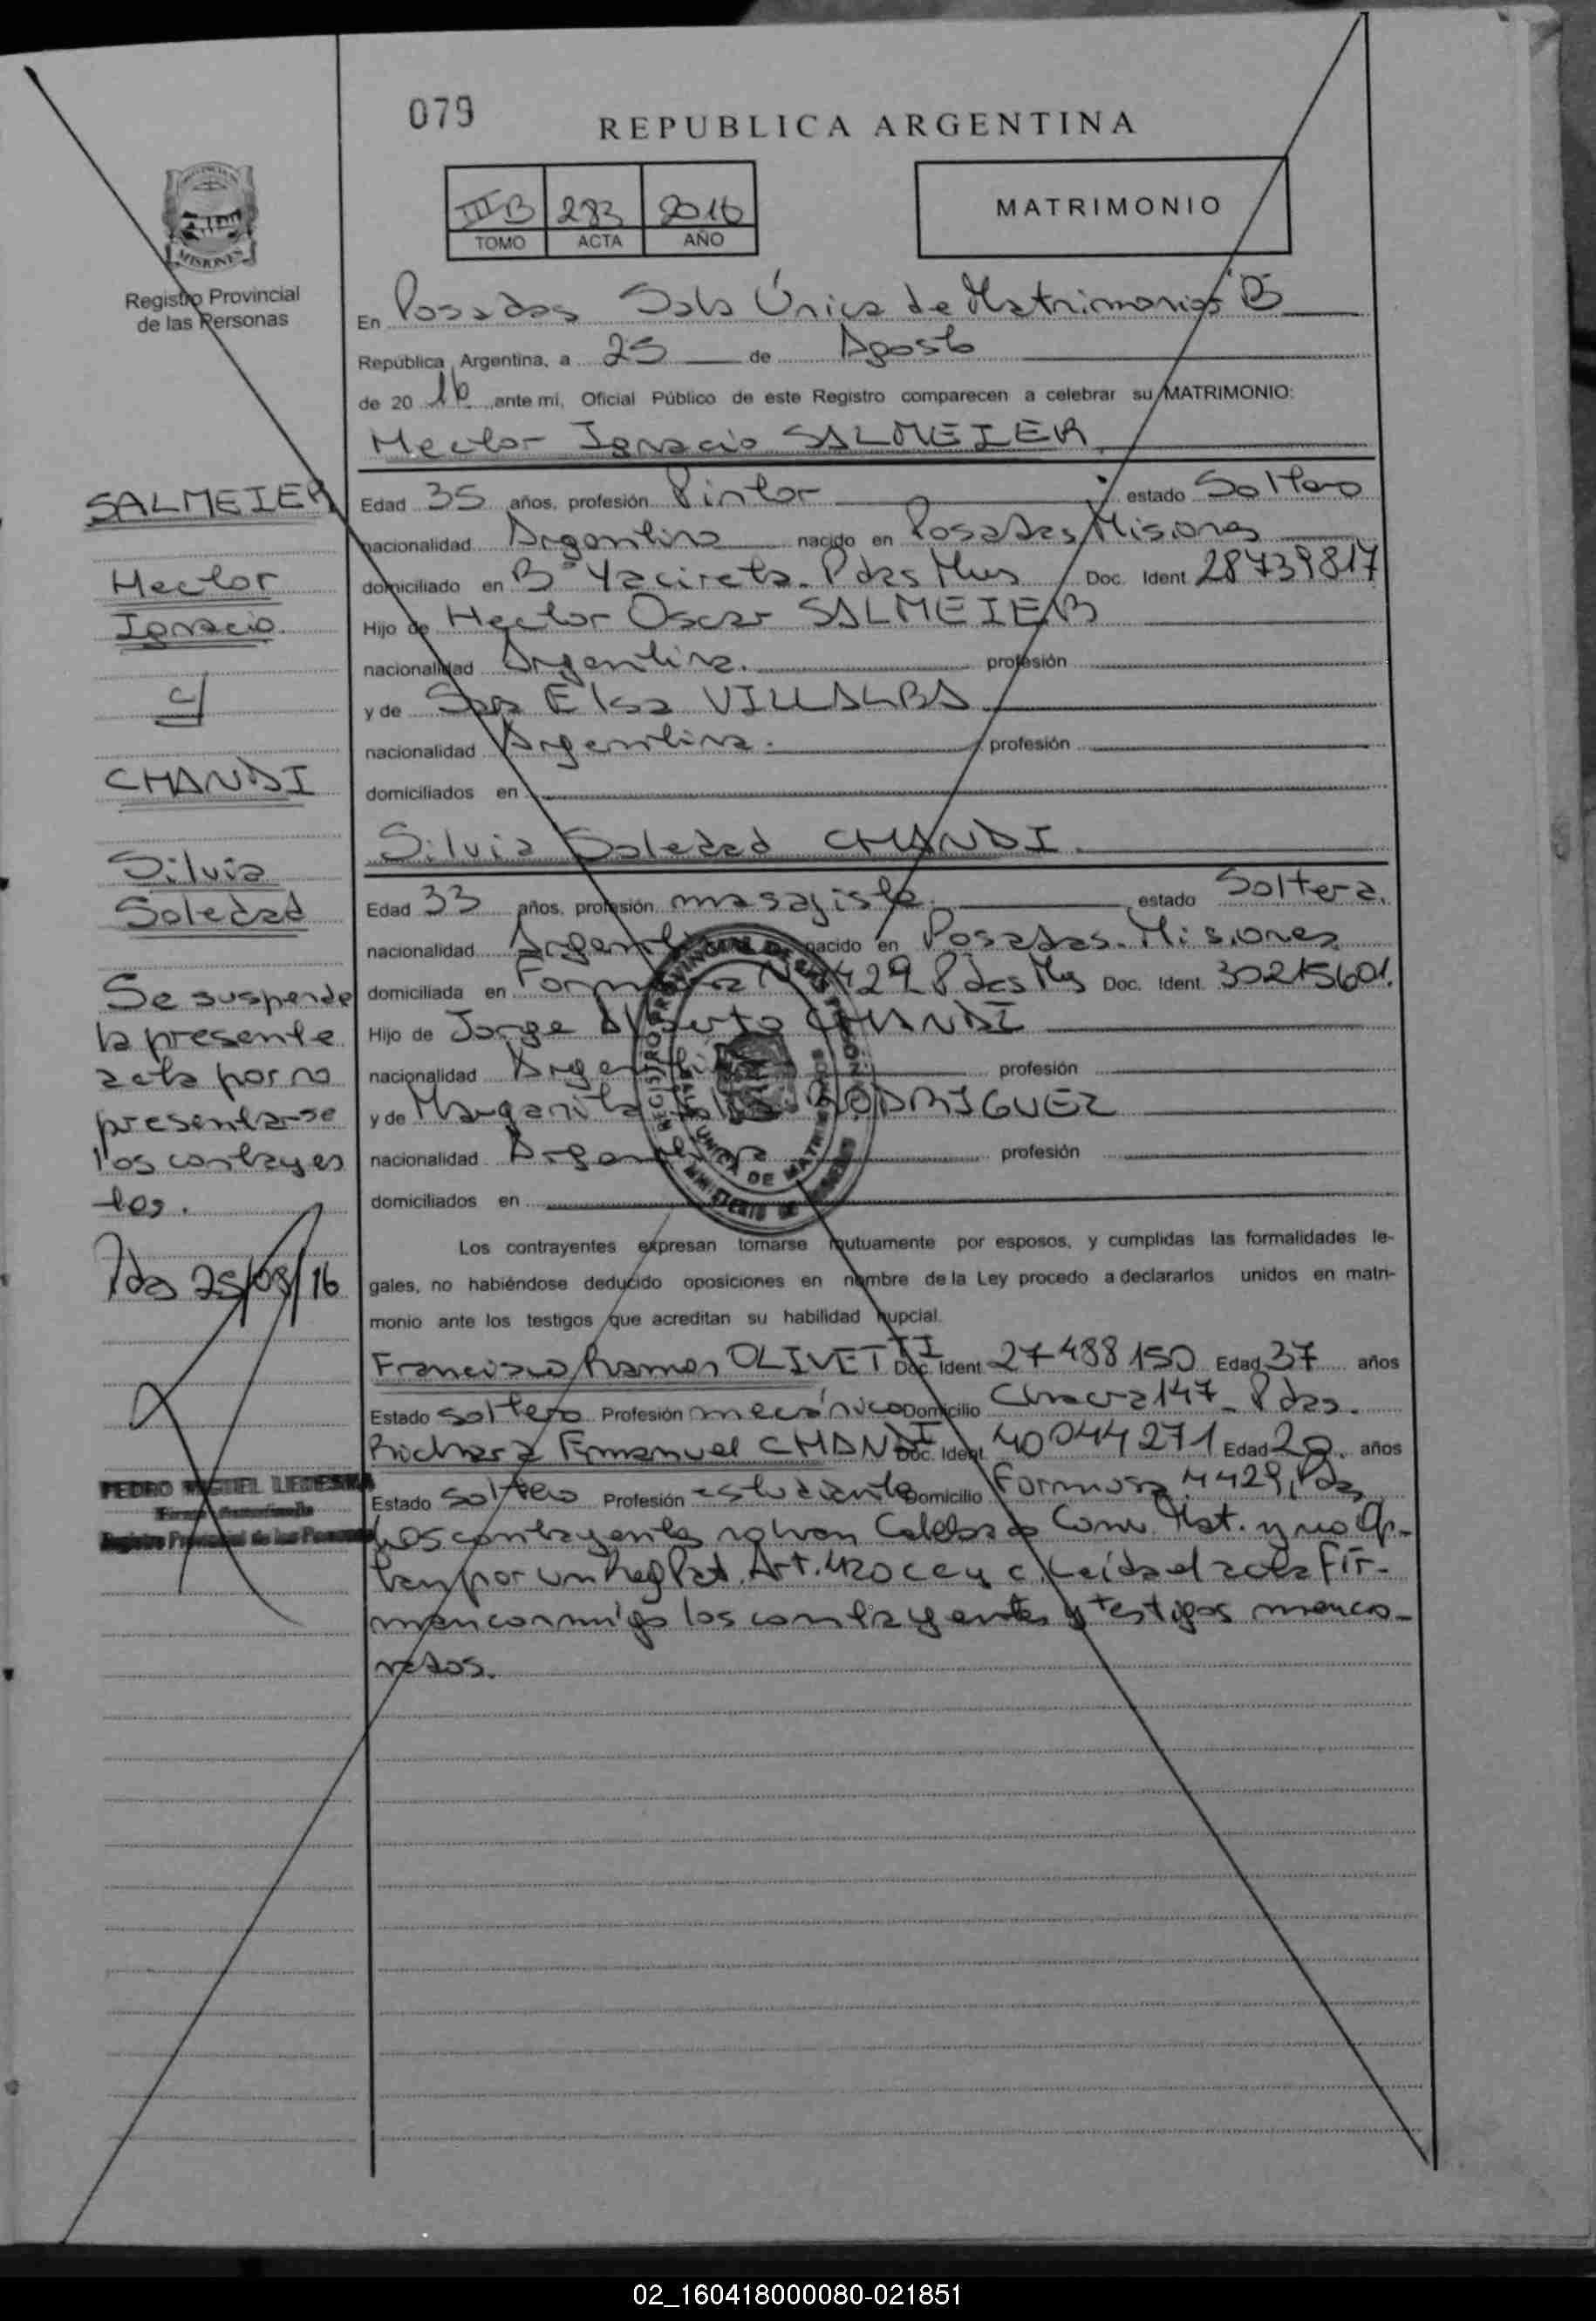 079
REPUBLICA ARGENTINA
III B 283 2016
TOMO ACTA AÑO
MATRIMONIO
MISIONES
Registro Provincial
de las Personas
En Posadas Sala Única de Matrimonios "B"
República Argentina, a 25 de Agosto
de 20 16 ante mi, Oficial Público de este Registro comparecen a celebrar su MATRIMONIO:
Hector Ignacio SALMEIER
Edad 35 años, profesión Pintor estado Soltero
nacionalidad Argentina nacido en Posadas Misiones
domiciliado en Bº Yacireta. Pdas Mns Doc. Ident. 28739817
Hijo de Hector Oscar SALMEIER
nacionalidad Argentina. profesión
y de Sara Elsa VILLALBA
nacionalidad Argentina. profesión
domiciliados en
Silvia Soledad CHANDI.
Edad 33 años, profesión masajista. estado Soltera.
nacionalidad Argentina nacido en Posadas. Misiones
domiciliada en Formosa Nº 4429 Pdas Mns Doc. Ident. 30215601.
Hijo de Jorge Alberto CHANDI
nacionalidad Argentina profesión
y de Margarita RODRIGUEZ
nacionalidad Argentina profesión
domiciliados en
REGISTRO PROVINCIAL DE LAS PERSONAS
SALA UNICA DE MATRIMONIOS
MINISTERIO DE GOBIERNO
Los contrayentes expresan tomarse mutuamente por esposos, y cumplidas las formalidades le-
gales, no habiéndose deducido oposiciones en nombre de la Ley procedo a declararlos unidos en matri-
monio ante los testigos que acreditan su habilidad nupcial.
Francisco Ramon OLIVETTI Doc. Ident. 27488150 Edad 37 años
Estado soltero Profesión mecánico Domicilio Chacra 147. Pdas.
Richard Emanuel CHANDI Doc. Ident. 40044271 Edad 20. años
Estado soltero Profesión estudiante Domicilio Formosa 4429, Pdas
Los contrayentes no han Celebrado Conv. Mat. y no Op-
tan por un Reg Pat. Art. 420 CC y C. Leída el acta Fir-
man conmigo los contrayentes y testigos mencio-
nados.
SALMEIER
Hector
Ignacio
c/
CHANDI
Silvia
Soledad
Se suspende
la presente
acta por no
presentarse
los contrayen
tes.
Pdas 25/08/16
PEDRO MIGUEL LEDESMA
Firma Autorizada
Registro Provincial de las Personas
02_160418000080-021851